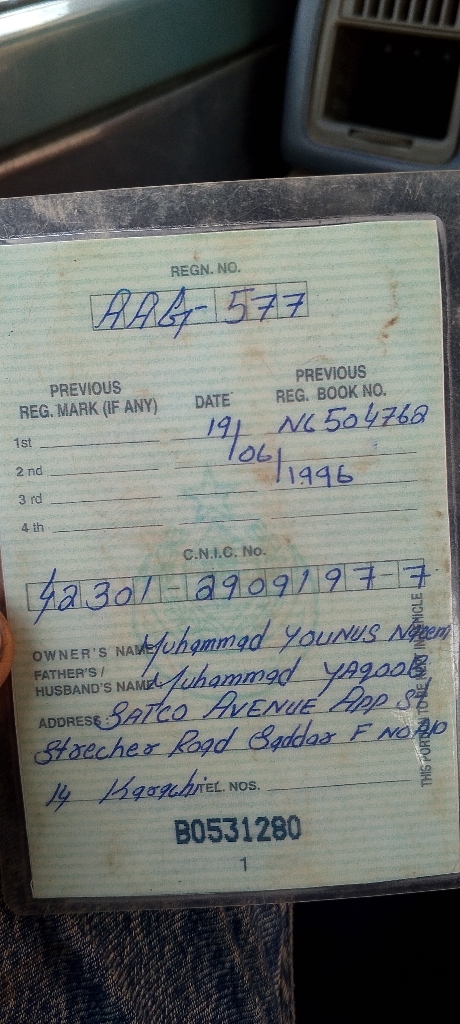 REGN. NO.
AAG-577
PREVIOUS REG. MARK (IF ANY) DATE PREVIOUS REG. BOOK NO.
1st 19/06/1996 NC504762
2 nd
3 rd
4 th
C.N.I.C. No.
42301-2909197-7
OWNER'S NAME Muhammad YOUNUS Naeem
FATHER'S / HUSBAND'S NAME Muhammad YAQOOB
ADDRESS SATCO AVENUE App St
Strecher Road Saddar F NO
14 Karachi TEL. NOS.
B0531280
1
THIS PORTION TO BE IN VEHICLE